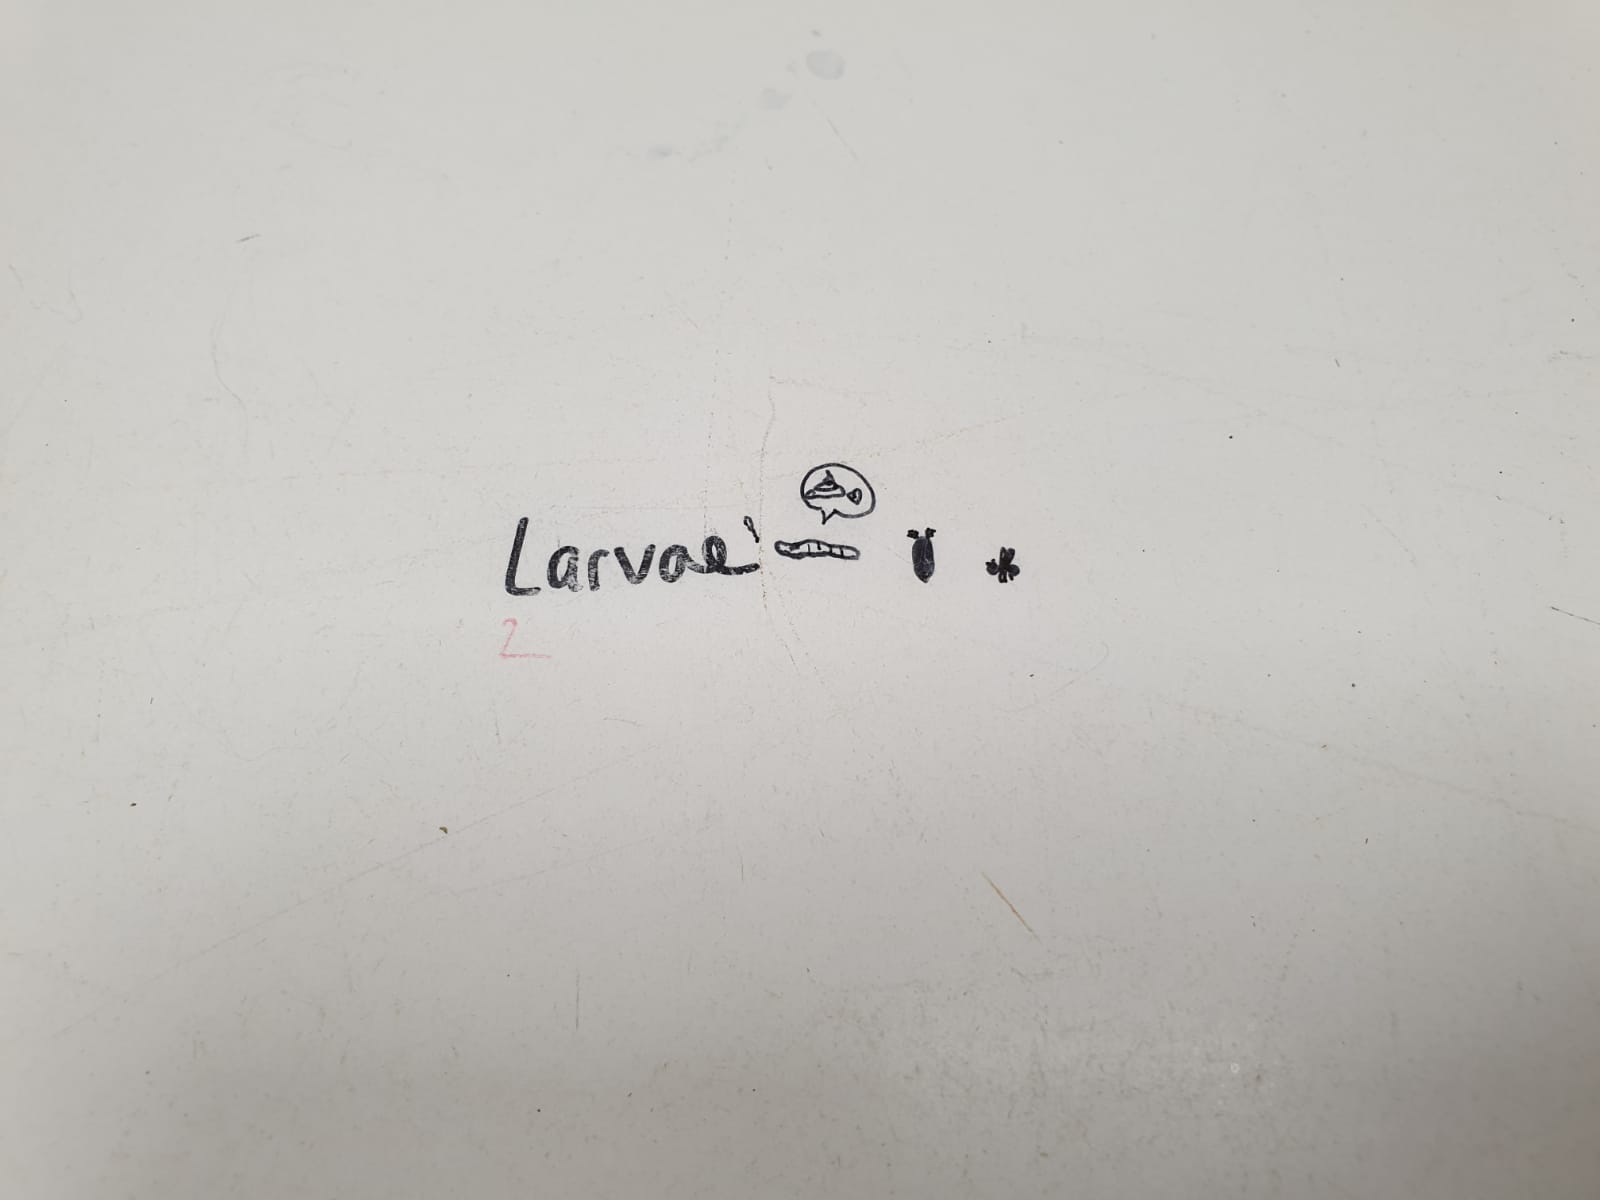 Larvae
2